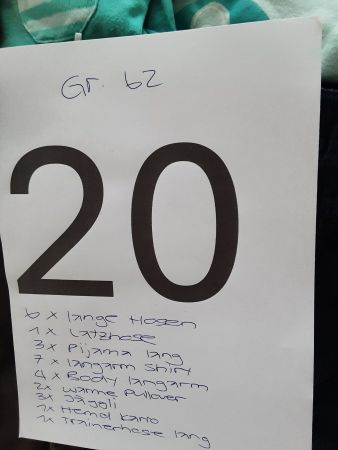 Gr. 62
20
6 x lange Hosen
1 x Latzhose
3 x Pijama lang
7 x langarm Shirt
4 x Body langarm
2x warme Pullover
3x Jäggli
1x Hemd karo
1x Trainerhose lang